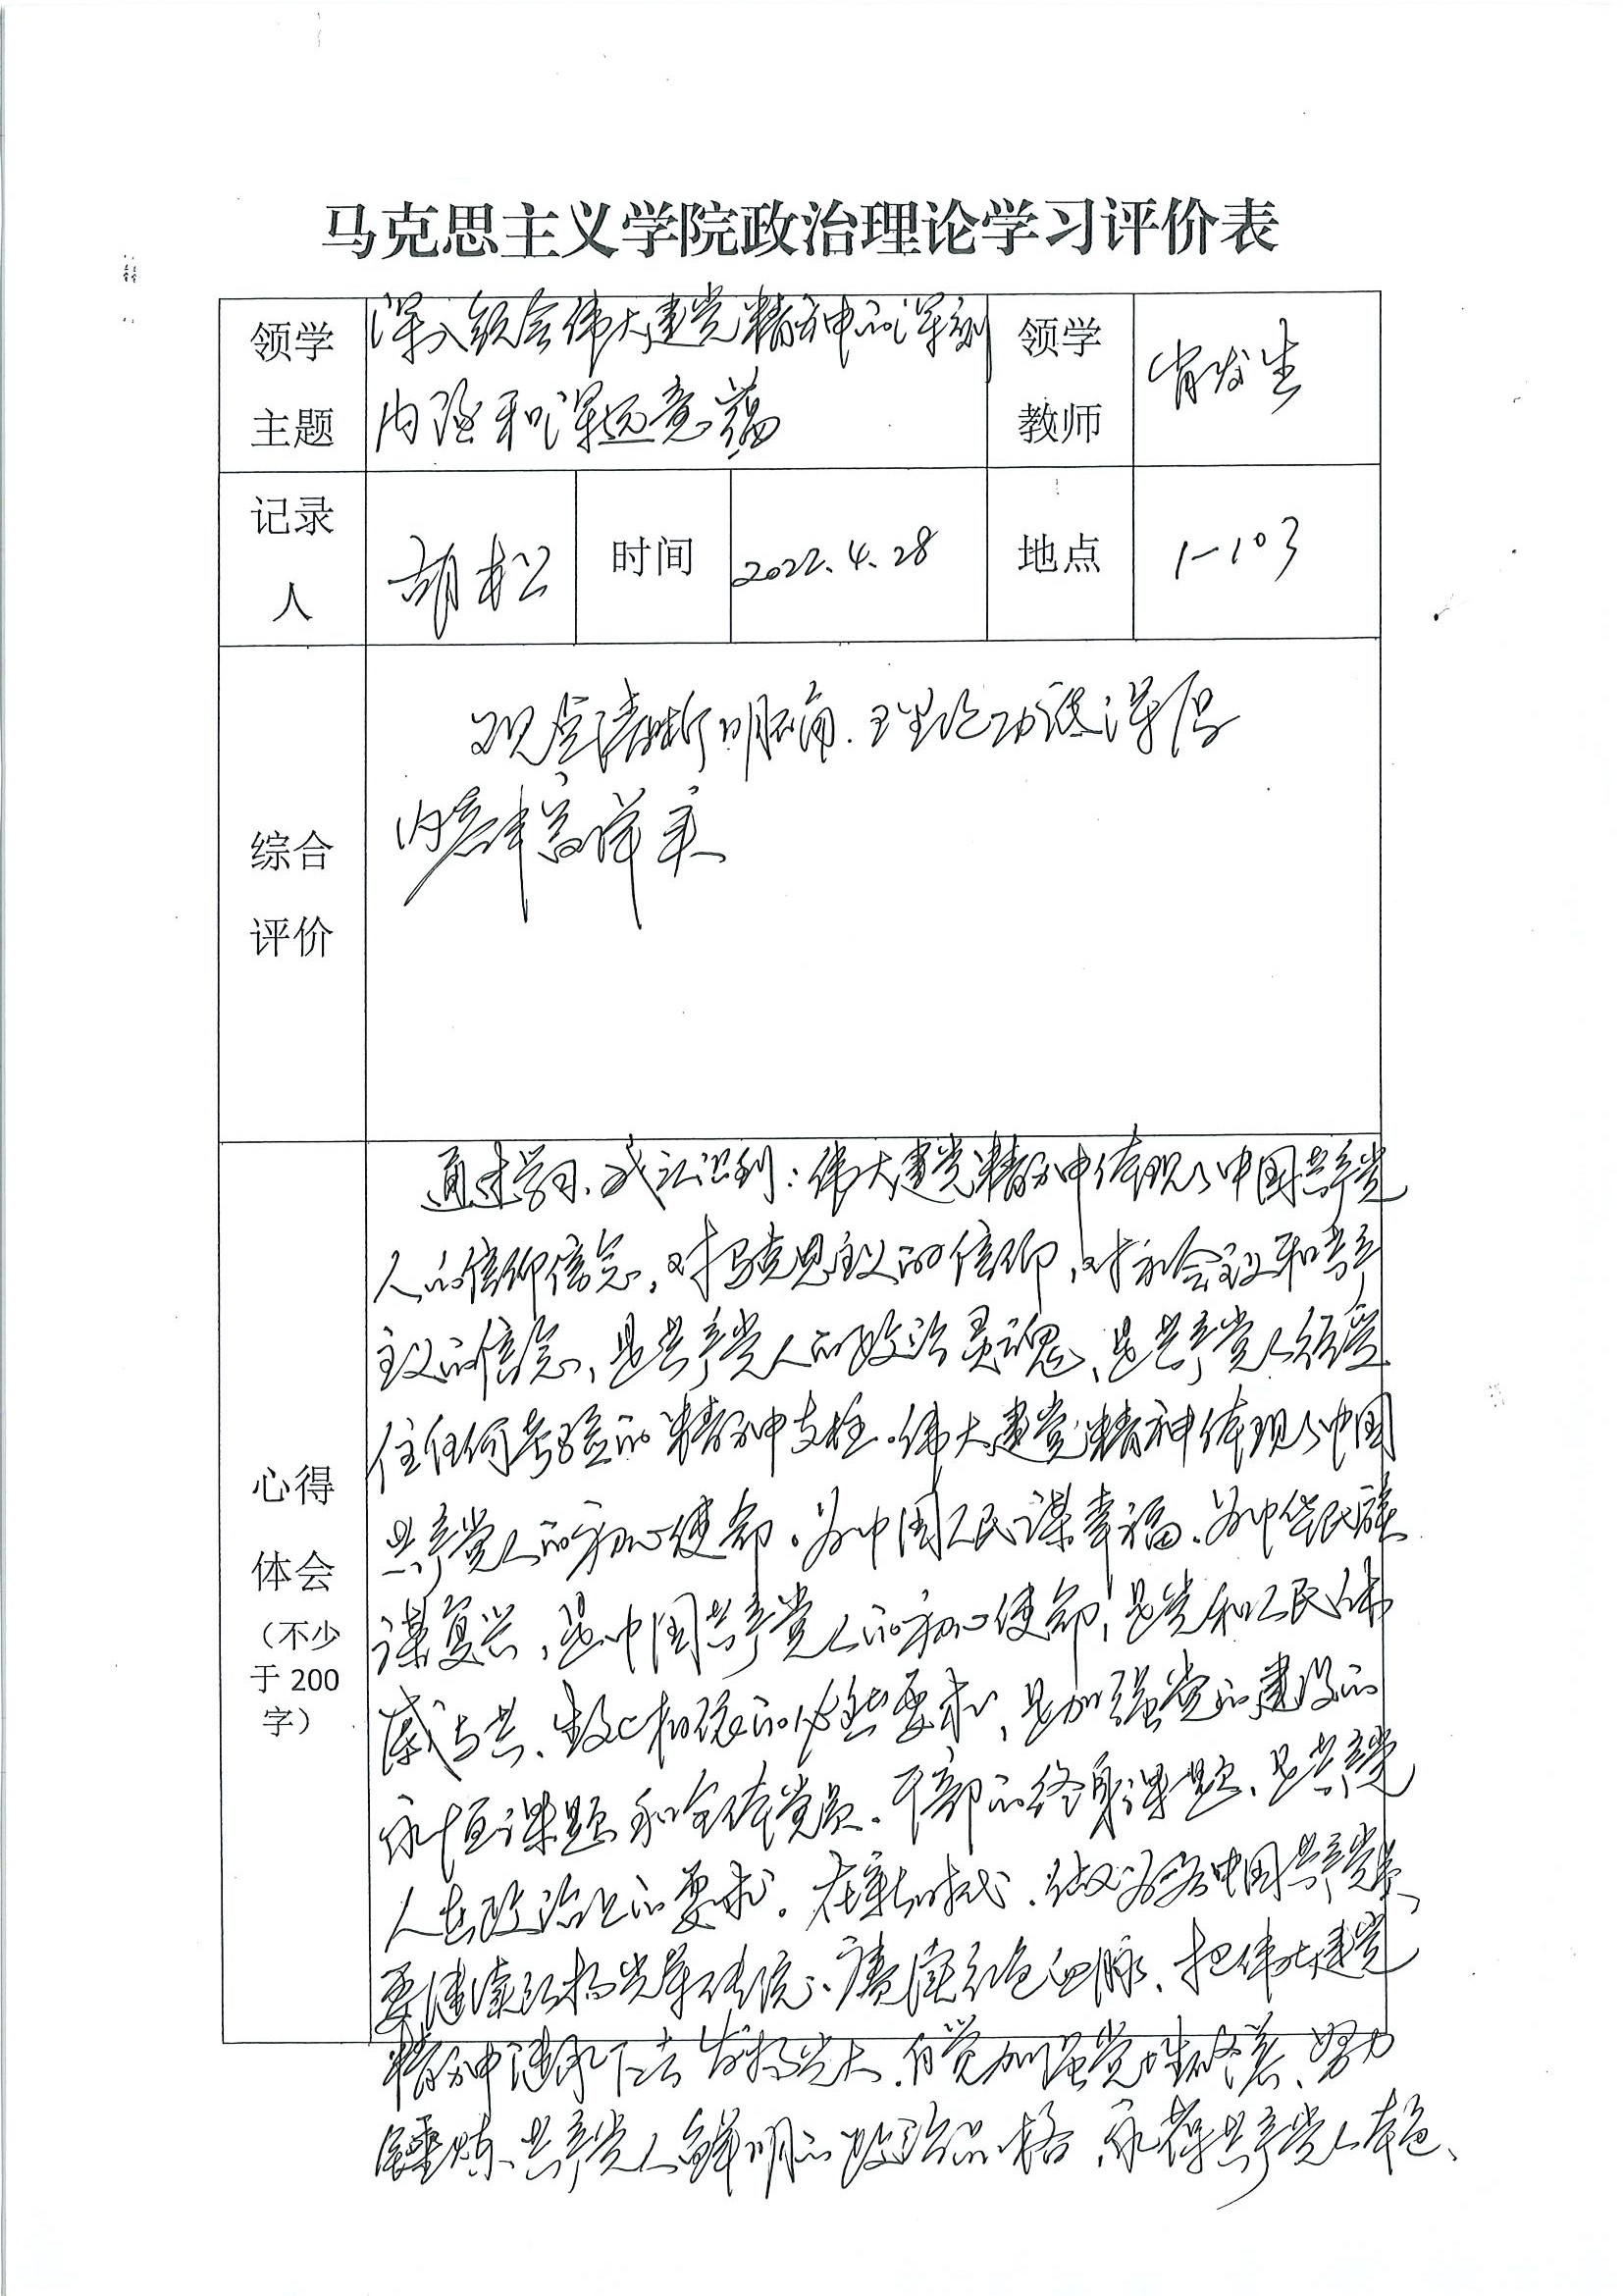 马克思主义学院政治理论学习评价表
领学主题
深入领会伟大建党精神的深刻
内涵和深远意蕴
领学教师
肖发生
记录人
胡松
时间
2022.4.28
地点
1-103
综合评价
观点清晰明确.理论功底深厚
内容丰富详实
心得体会
(不少于200字)
通过学习、我认识到：伟大建党精神体现了中国共产党
人的信仰信念，对马克思主义的信仰，对社会主义和共产
主义的信念，是共产党人的政治灵魂，是共产党人经受
住任何考验的精神支柱.伟大建党精神体现了中国
共产党人的初心使命。为中国人民谋幸福、为中华民族
谋复兴，是中国共产党人的初心使命，是党和人民
是加强党的建设的
永恒课题和全体党员、干部的终身课题、是共产党
人在政治上的要求。在新时代、中国共产党人
要继续弘扬光荣传统、赓续红色血脉、把伟大建党
精神继承下去发扬光大.自觉加强党性修养、努力
共产党人鲜明的政治品格，永葆共产党人本色、